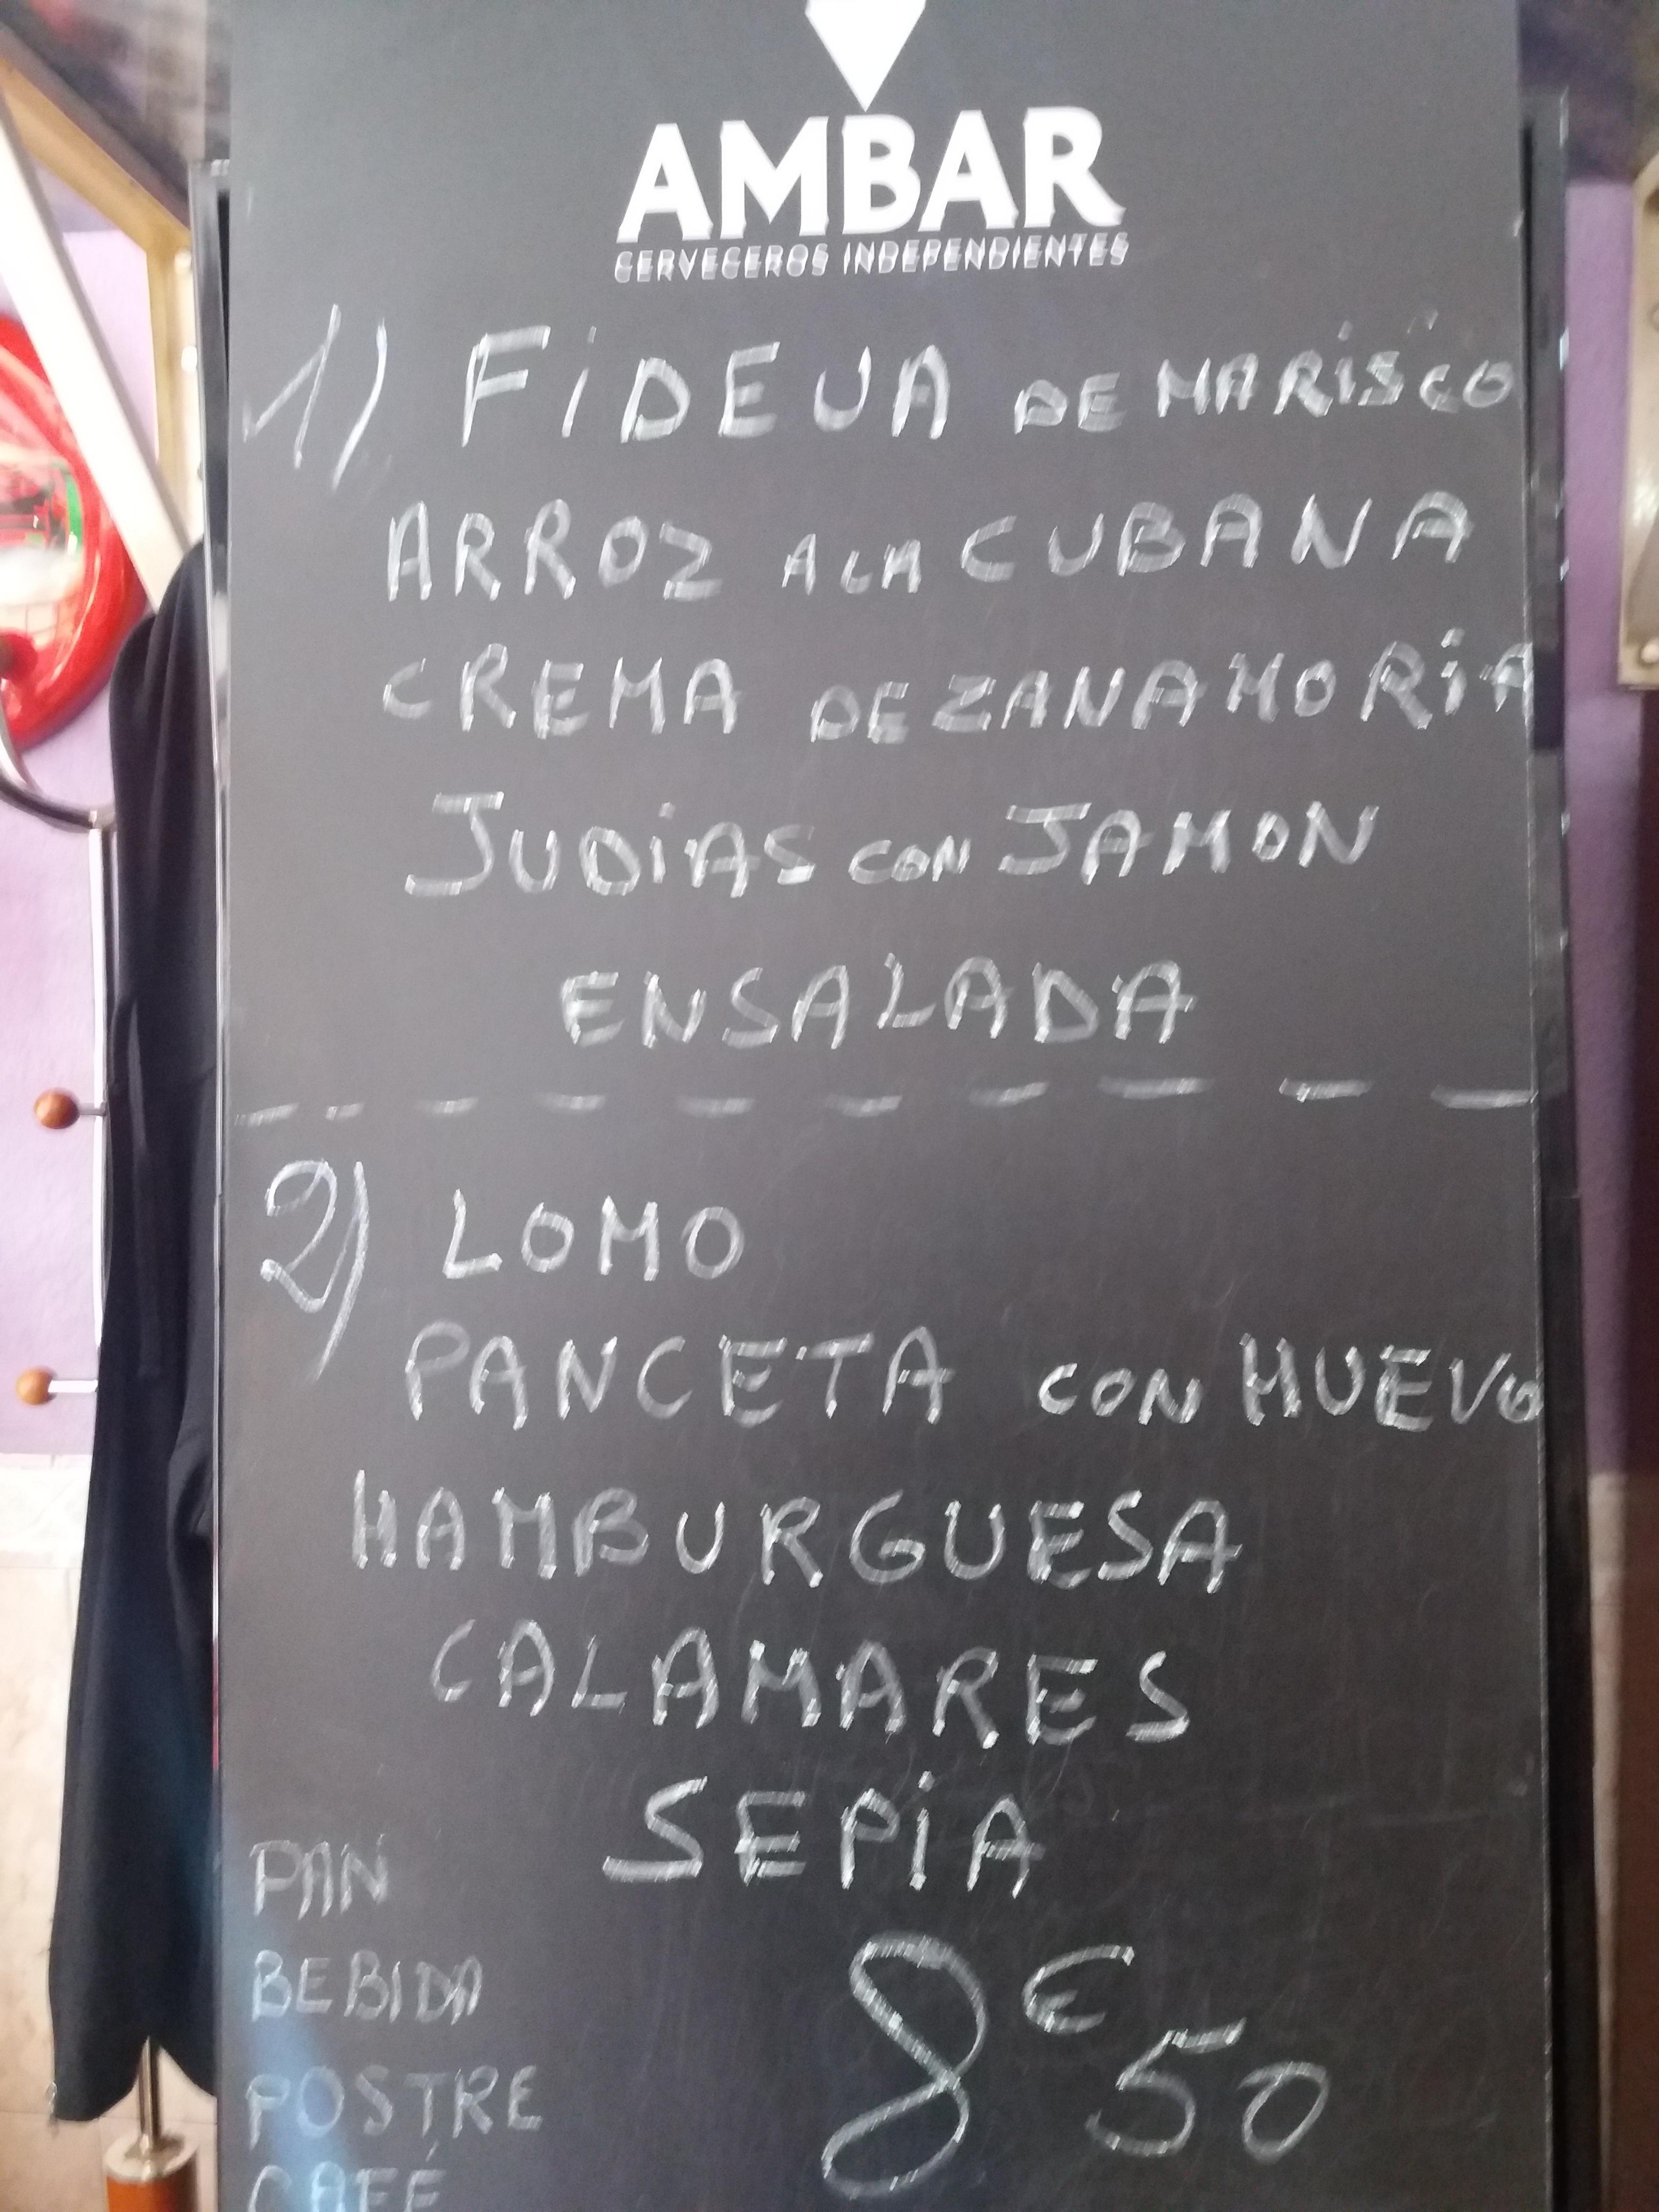 AMBAR
CERVECEROS INDEPENDIENTES
1) FiDEUA DE MARiSCO
ARROZ A LA CUBANA
CREMA DE ZANAMORiA
JUDiAS CON JAMON
ENSALADA
2) LOMO
PANCETA CON HUEVO
HAMBURGUESA
CALAMARES
SEPiA
PAN
BEBIDA
POSTRE
CAFÉ
8€50